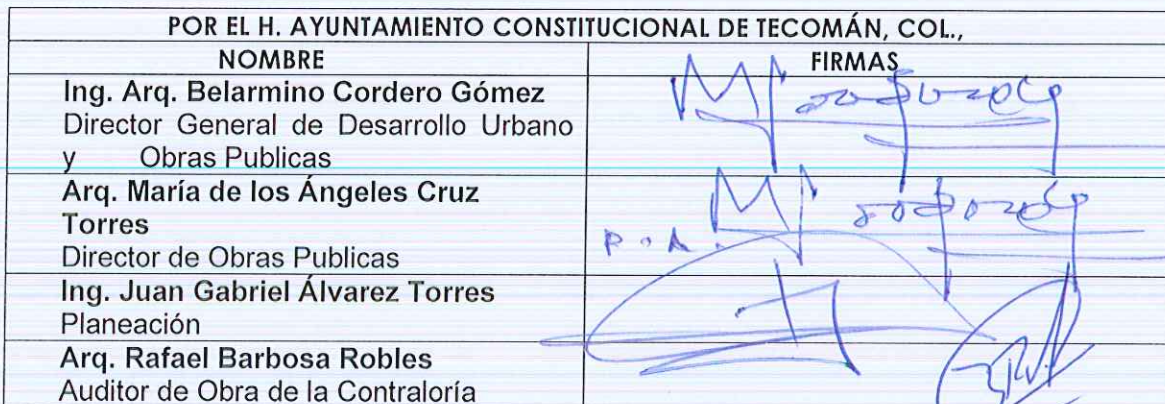 POR EL H. AYUNTAMIENTO CONSTITUCIONAL DE TECOMÁN, COL.,
NOMBRE FIRMAS
Ing. Arq. Belarmino Cordero Gómez
Director General de Desarrollo Urbano
y Obras Publicas
Arq. María de los Ángeles Cruz
Torres
P.A.
Director de Obras Publicas
Ing. Juan Gabriel Álvarez Torres
Planeación
Arq. Rafael Barbosa Robles
Auditor de Obra de la Contraloría